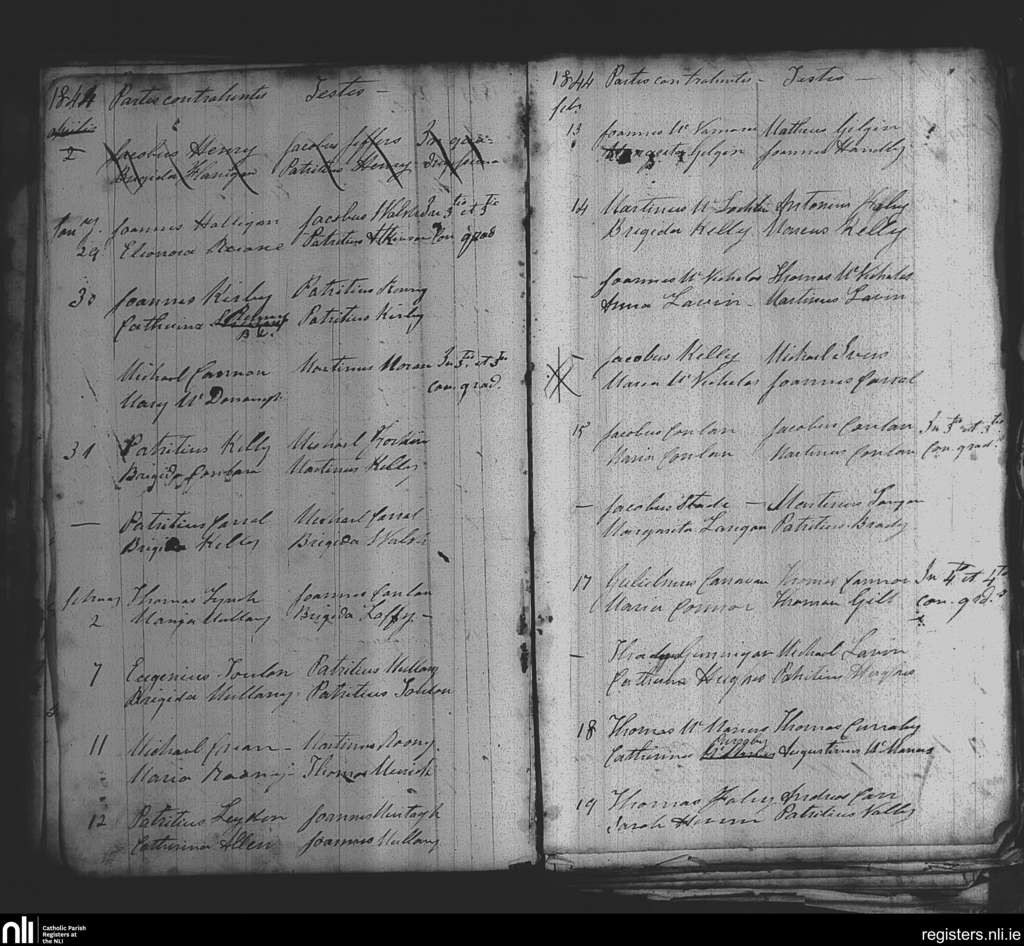 1844 Partes contrahentes Testes —
Aprilis
2 Jacobus Henry Jacobus Jeffers In quar-
Brigida Flanigan Patritius Henry
Janry. Joannes Halligan Jacobus Walsh In 3tio et 3tio
29 Eleonora Patritius Atkinson Con grad
30 Joannes Kirby Patritius Kenny
Catherina Kenny Patritius Kirby
B.
Michael Cannon Martinus Moran In 3tio et 3tio
Mary McDonough con. grad.
31 Patritius Kelly Michael
Brigida Conlan Martinus Kelly
— Patritius Carral Michael Carral
Brigida Kelly Brigida Walsh
Februay Thomas Lynch Joannes Conlan
2 Mullany Brigida
7 Eugenius Toulon Patritius Mullany
Brigida Mullany Patritius Toulon
11 Michael Crean — Martinus Roony
Maria Roony Thomas
12 Patritius Leydon Joannes Murtagh
Catherina Allen Joannes Mullany
1844 Partes contrahentes — Testes —
feby
13 Joannes McNamara Matheus Gilgin
Margarita Gilgin Joannes Handly
14 Martinus McLochlin Antonius Haley
Brigida Kelly Marcus Kelly
— Joannes McNicholas Thomas McNicholas
Anna Lavin — Martinus Lavin
— Jacobus Kelly Michael Ivers
Maria McNicholas Joannes Carral
15 Jacobus Conlan Jacobus Conlan In 3tio et 3tio
Maria Conlan Martinus Conlan Con. grad.
— Jacobus Slade — Martinus Langan
Margarita Langan Patritius Brady
17 Gulielmus Canavan Thomas Connor In 4to et 4to
Maria Connor Thomas Gill con. grad.
— Thady Gunnigan Michael Lavin
Catherina Hughes Patritius Hughes
18 Thomas McManus Thomas Curraby
Curraby
Catherina Augustinus McManus
19 Thomas Haley Andreas Carr
Sarah Patritius Nalty
nli Catholic Parish
Registers at
the NLI
registers.nli.ie